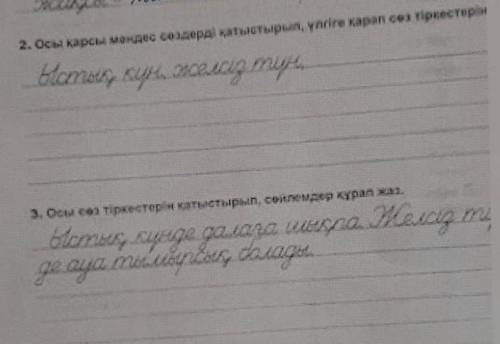 2. Осы қарсы мәндес сөздерді қатыстырып, үлгіге қарап сөз тіркестерін
Ыстық күн, желсіз түн,
3. Осы сөз тіркестерін қатыстырып, сөйлемдер құрап жаз.
Ыстық күнде далаға шықпа. Желсіз тү
де ауа тымырсық болады.